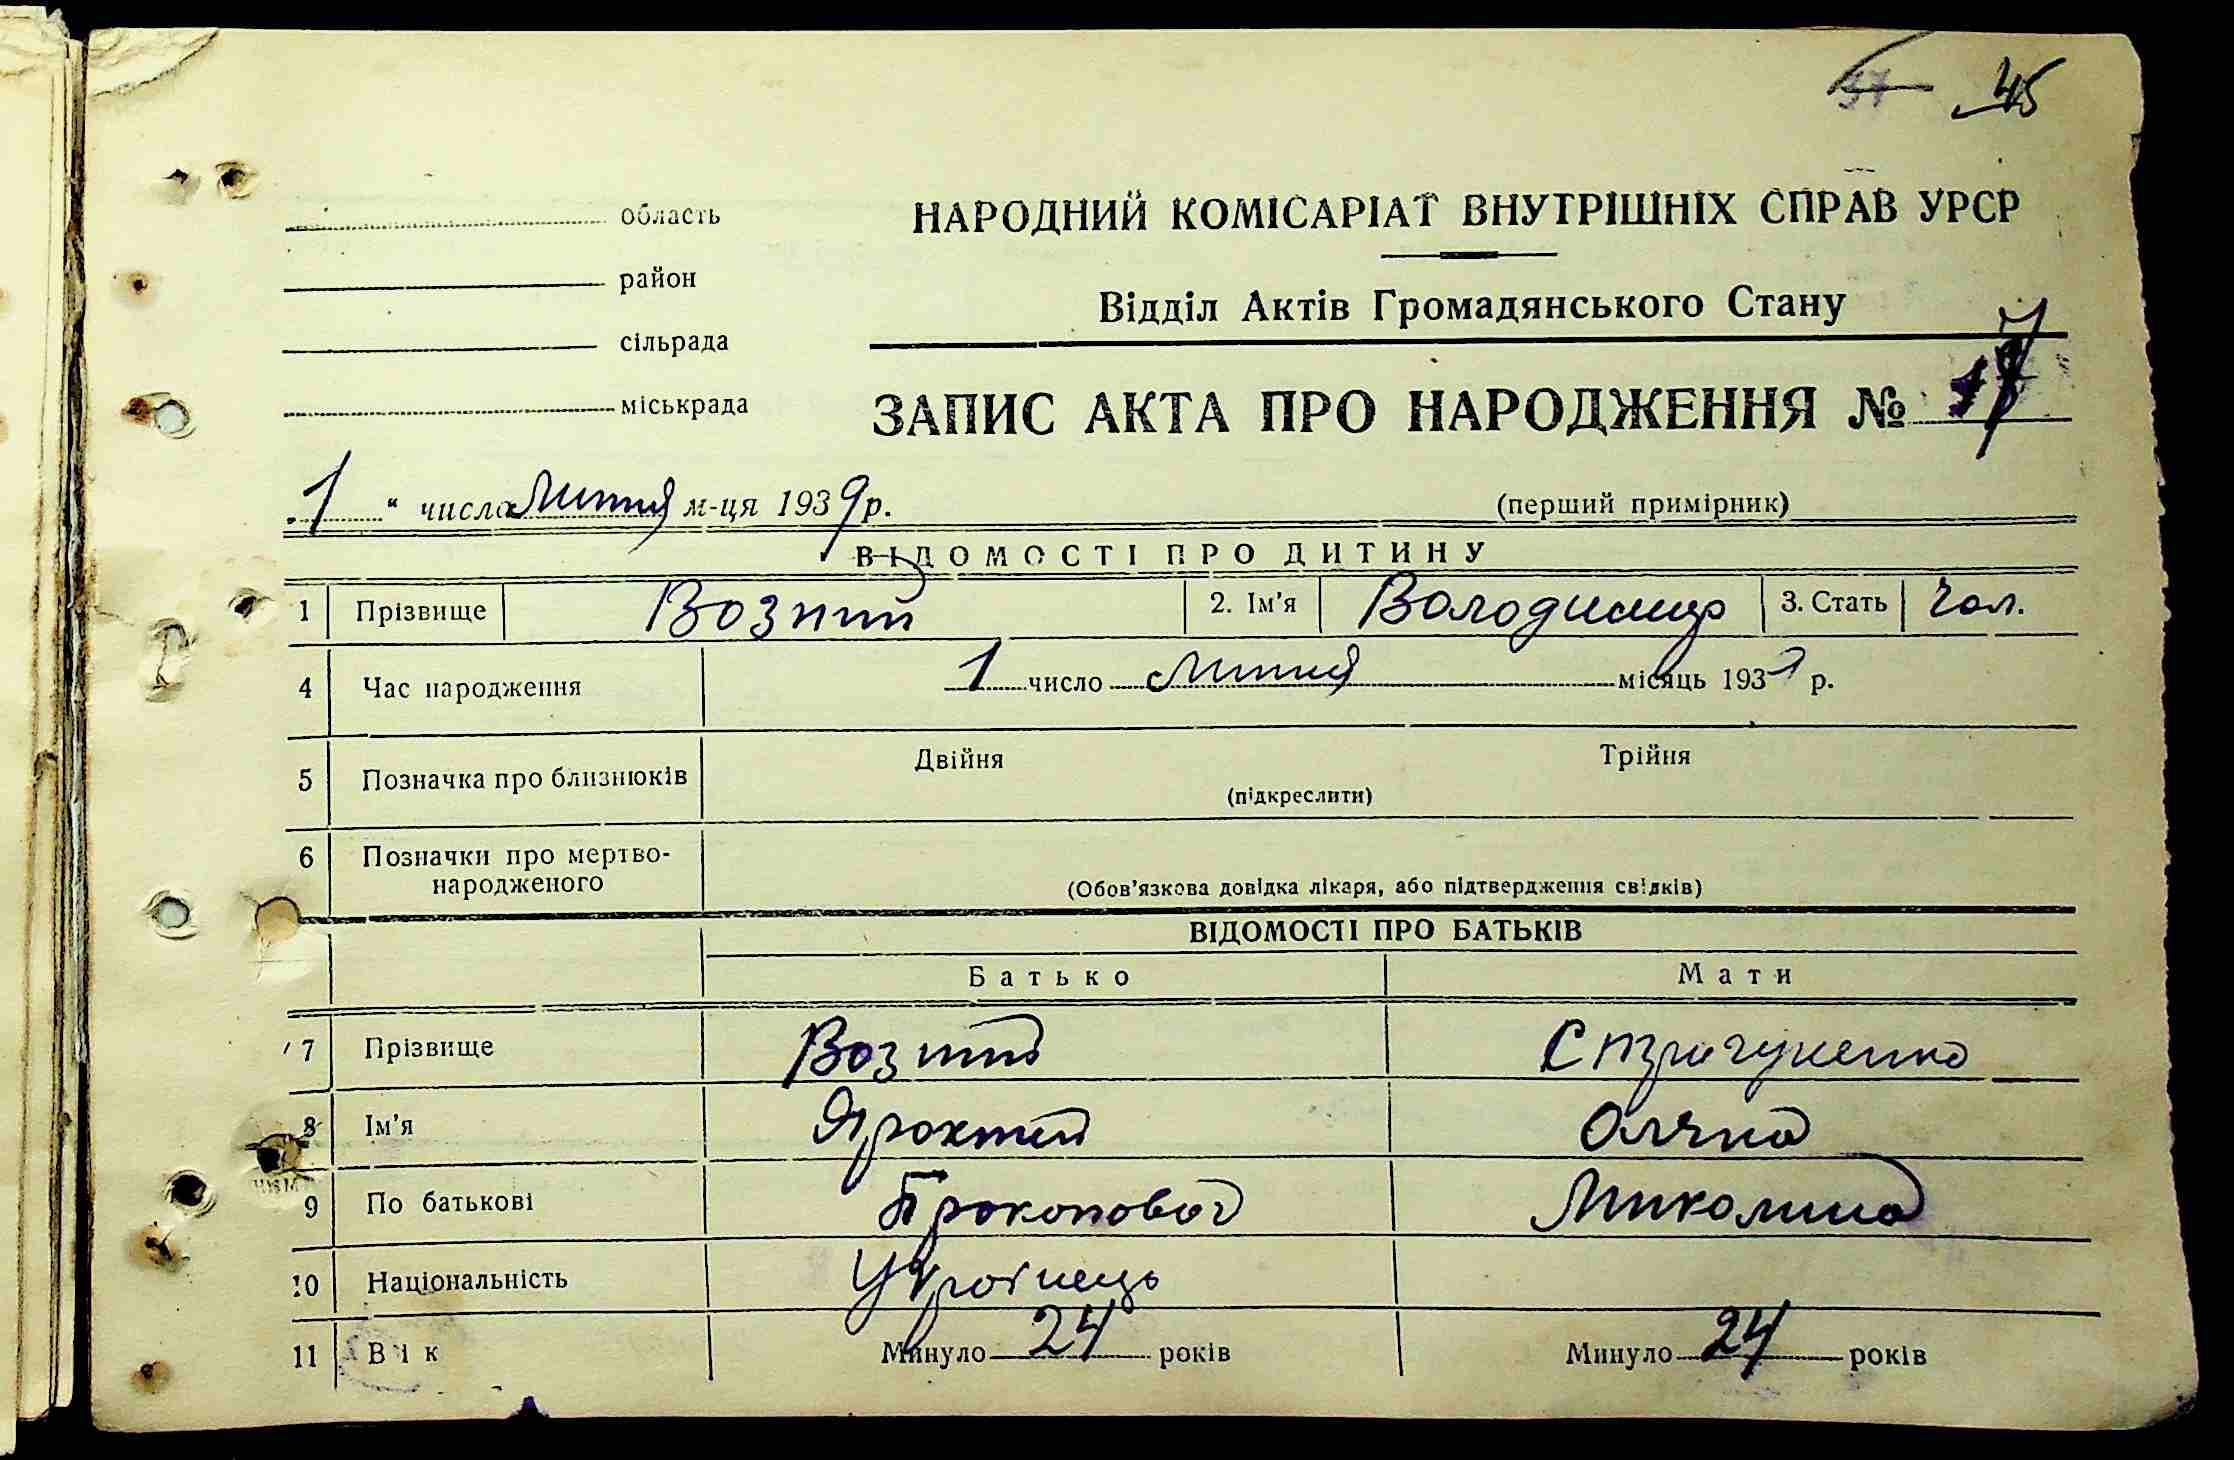 45
область
НАРОДНИЙ КОМІСАРІАТ ВНУТРІШНІХ СПРАВ УРСР
район
Відділ Актів Громадянського Стану
сільрада
міськрада
ЗАПИС АКТА ПРО НАРОДЖЕННЯ № 17
1 " числа Липня м-ця 1939 р.
(перший примірник)
ВІДОМОСТІ ПРО ДИТИНУ
1 Прізвище Возний 2. Ім'я Володимир 3. Стать Чол.
4 Час народження 1 число Липня місяць 1939 р.
5 Позначка про близнюків Двійня Трійня
(підкреслити)
6 Позначки про мертво-
народженого
(Обов'язкова довідка лікаря, або підтвердження свідків)
ВІДОМОСТІ ПРО БАТЬКІВ
Батько Мати
7 Прізвище Возний
8 Ім'я
9 По батькові Прокопович
10 Національність Украінець
11 Вік Минуло 24 років Минуло 24 років